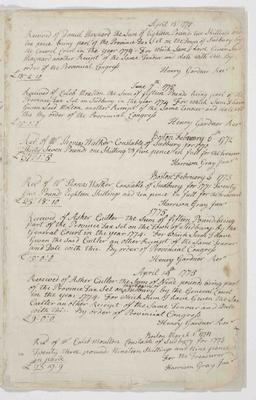 April 15th 1775
Received of Daniel Maynard the Sum of Eighteen Pounds two Shillings and
ten pence being part of the Province Tax Set on the Town of Sudbury by
the General Court in the year 1774 For Which Sum I have Given Said
Maynard another Receipt of the Same Tenour and date with this By
order of the Provincial Congress
£18-2-10 Henry Gardner Recr
June 7th 1775
Received of Caleb Moulton the Sum of fifteen Pounds being part of the
Province Tax Set on Sudbury in the year 1774 For which Sum I have
Given Said Molton another Receipt of the Same Tenour and date with
this By order of the Provincial Congress
Henry Gardner Recr
Boston February 6th 1772
Recd of Mr Thomas Walker Constable of Sudbury for 1770
Pounds one Shilling & five pence in full for the Treasurer
Harrison Gray Junr
Boston February 5 1773
Recd of Mr Thomas Walker Constable of Sudbury for 1771 Twenty
five Pounds Eighteen Shillings and ten pence in full for the Treasurer
£25-18-10 Harrison Gray Junr
1775
Receivd of Asher Cutler the Sum of fifteen Pounds being
part of the Province Tax Set on the Town of Sudbury by the
General Court in the year 1774 For Which Sum I have
Given the Said Cutler an other Receipt of the Same Tenour
and Date with this. By order of Provincial Congress
£15-0-0 Henry Gardner Recr
April 14th 1775
Received of Asher Cutler the Sum of Nine pounds being part
of the Province Tax Set on Sudbury by the General Court
in the year 1774. For which Sum I have Given the Said
Cutler an other Receipt of the Same Tenour and Date
with this. By order of Provincial Congress
£9-0-0 Henry Gardner Recr
Boston March
Recd of Mr Caleb Moulton Constable of Sudbury for 1773
Twenty three pounds Nineteen Shillings and Nine pence
in part for the Treasurer
£23-19-9 Harrison Gray Junr